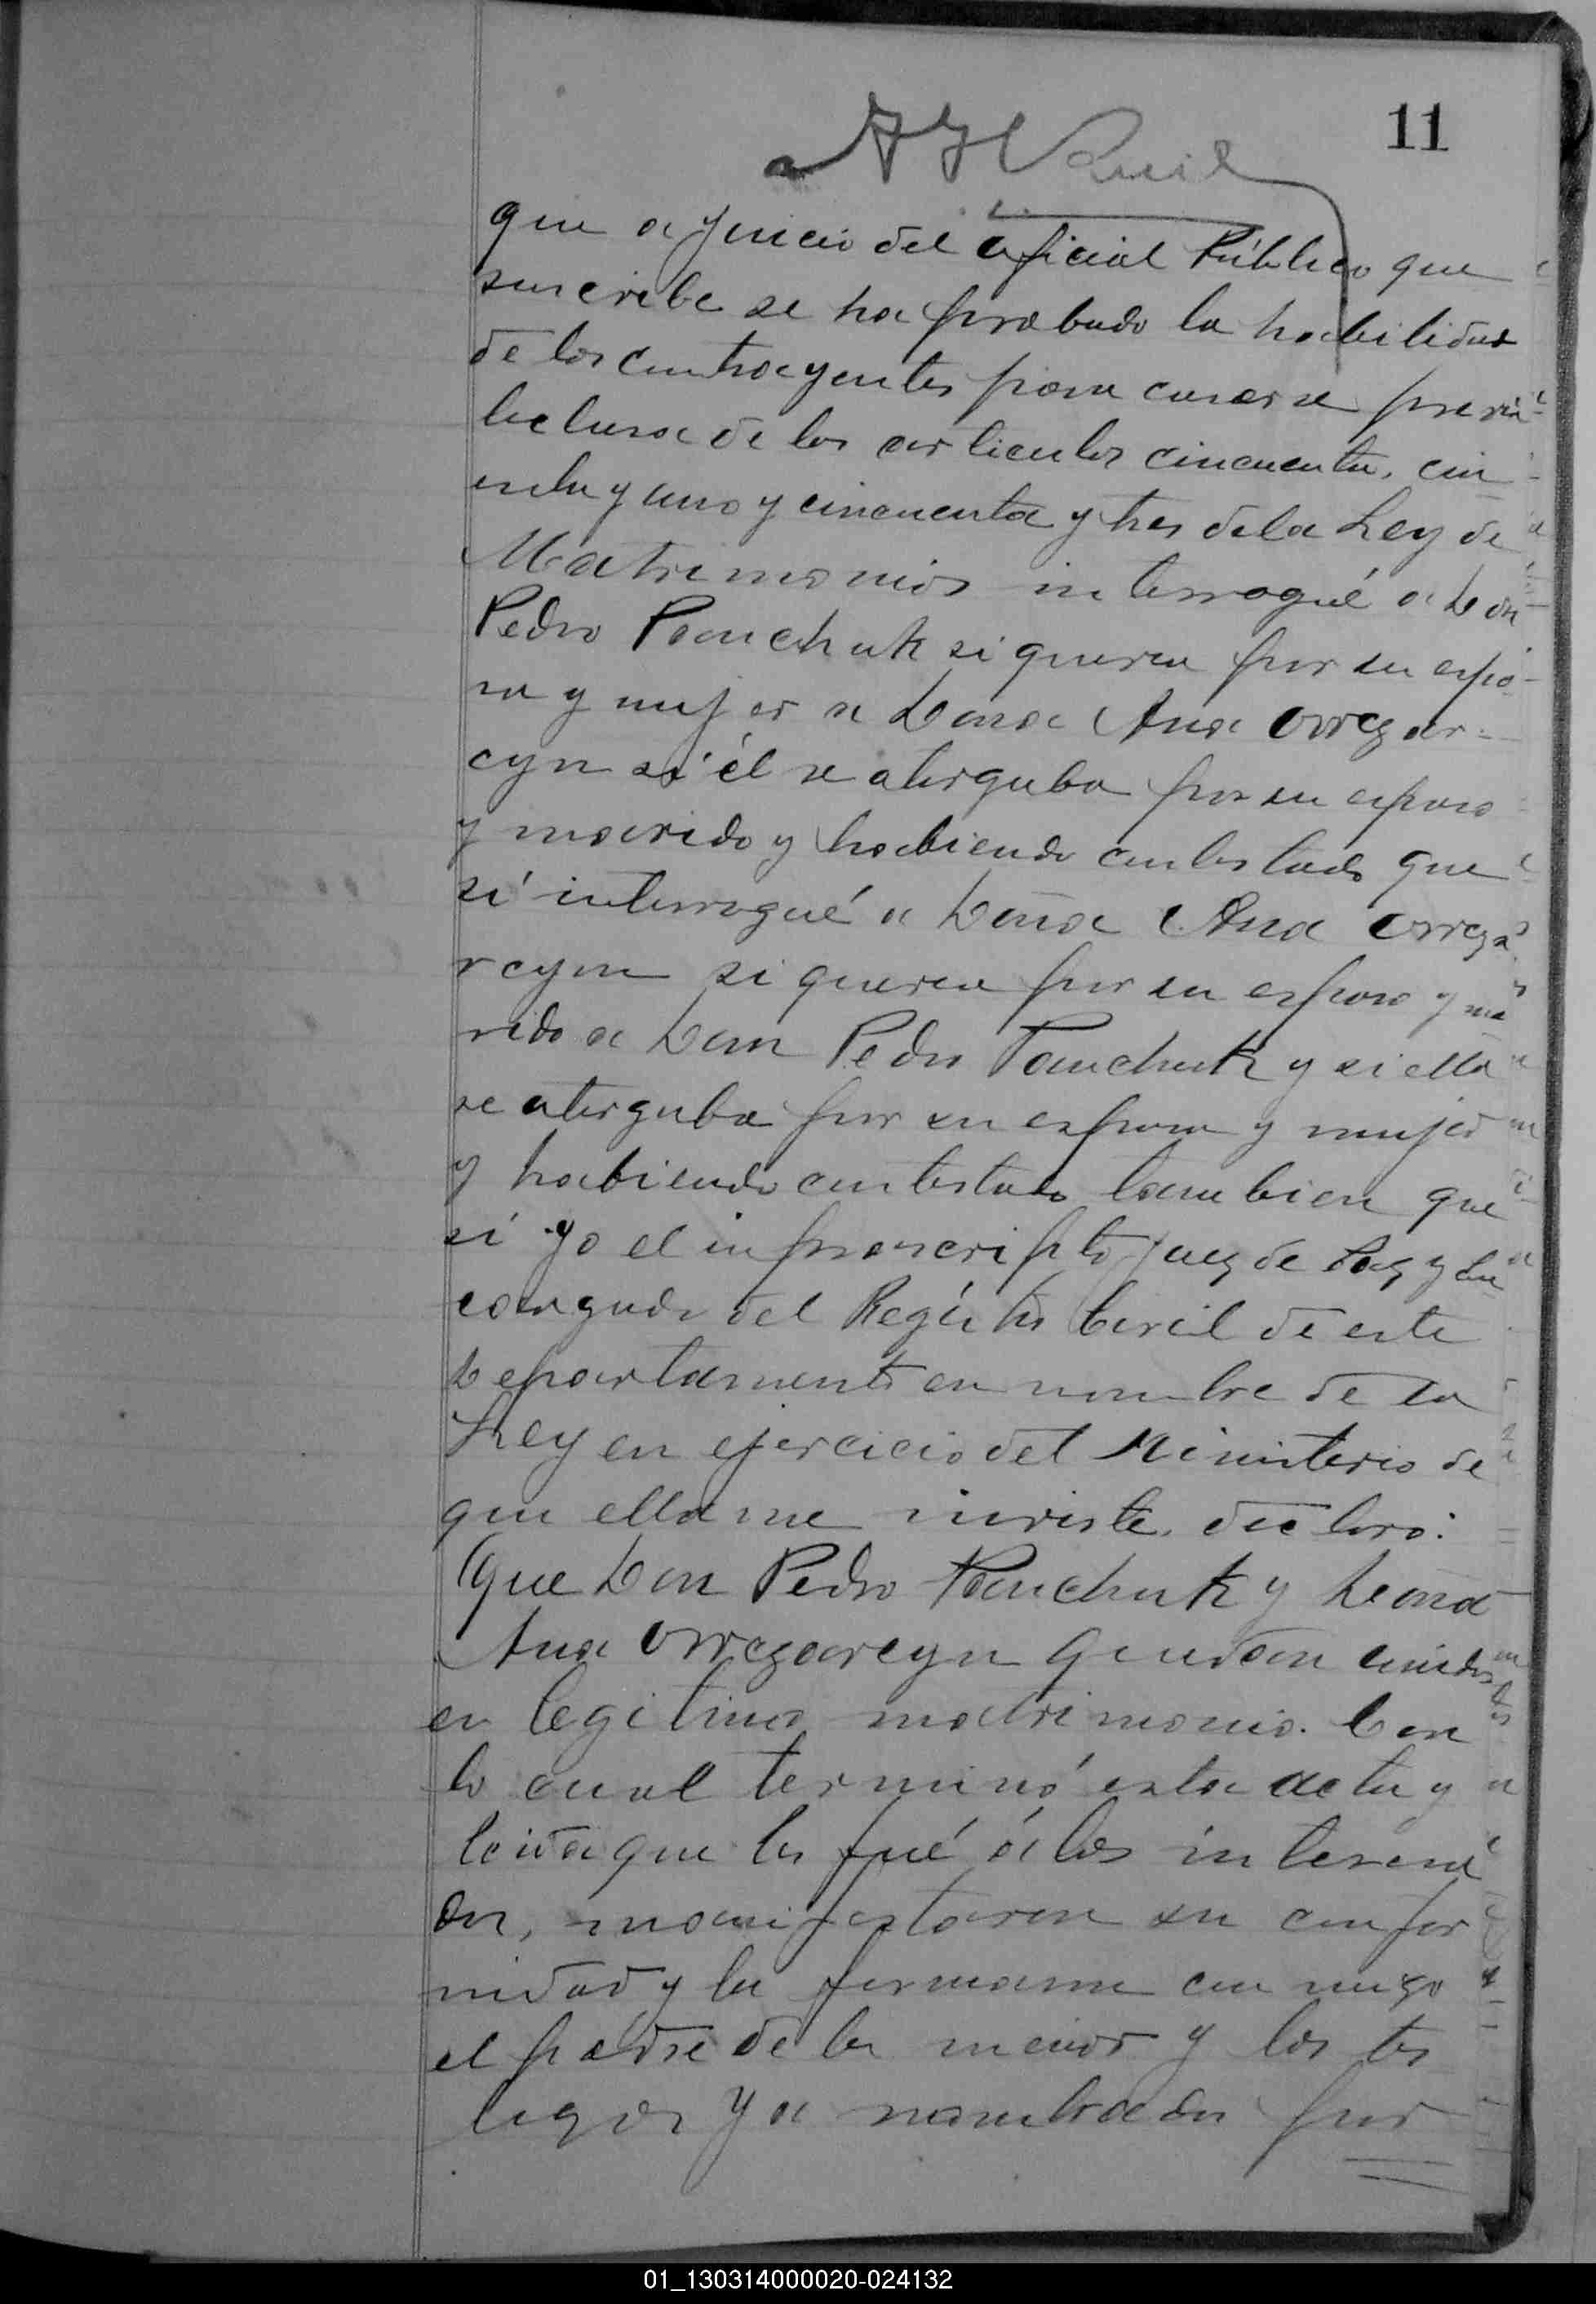 11
que a juicio del oficial Público que
suscribe se ha probado la habilidad
de los contrayentes para casarse previa
lectura de los articulos cincuenta, cin
cuenta y uno y cincuenta y tres de la Ley de
Matrimonios interrogué a Don
Pedro Panchuk si queria por su espo-
sa y mujer a Dona Ana Orregar-
cyn si él se otorgaba por su esposo
y marido y habiendo contestado que
sí interrogué a Doña Ana Orrega
rcyn si queria por su esposo y ma
rido a Don Pedro Panchuk y si ella
se otorgaba por su esposa y mujer
y habiendo contestado tambien que
sí yo el infrascripto Juez de Paz y En
cargado del Registro Civil de este
Departamento en nombre de la
Ley en ejercicio del Ministerio de
que ella me inviste, declaro:
Que Don Pedro Panchuk y Doña
Ana Orregarcyn quedan unidos
en legitimo matrimonio. Con
lo cual terminó esta acta y
leida que les fué á los interesa
dos, manifestaron su confor
midad y la firmaron con migo
el padre de la menor y los tes
tigos ya nombrados por
01_130314000020-024132